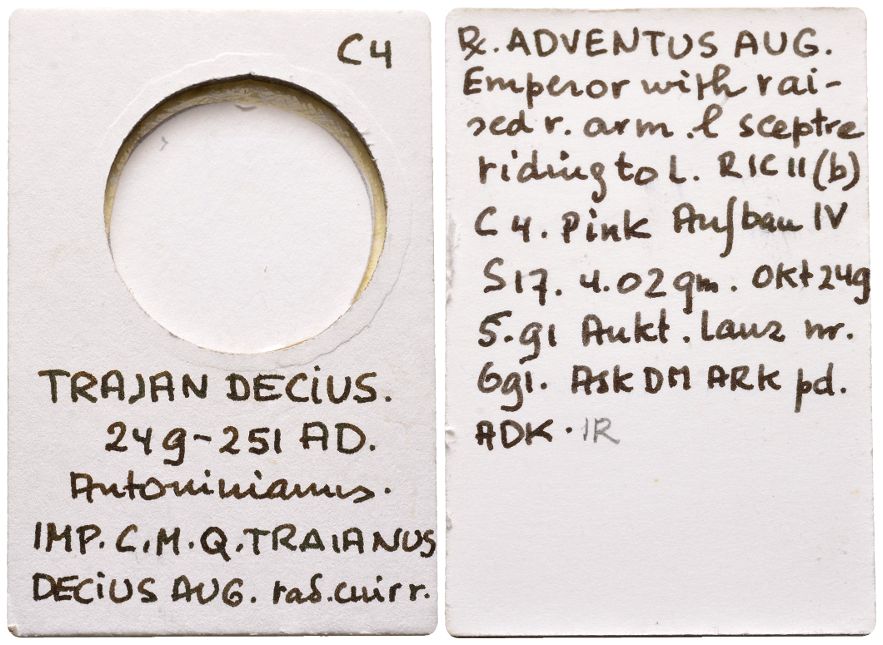 C4
TRAJAN DECIUS.
249-251 AD.
Antoninianus.
IMP. C. M. Q. TRAIANUS
DECIUS AUG. rad. cuirr.
℞. ADVENTUS AUG.
Emperor with rai-
sed r. arm. l sceptre
riding to L. RIC 11 (b)
C 4. Pink Aufbau IV
S17. 4.02 gm. Okt 249
5.91 Aukt. Lanz nr.
691. Ask DM ARK pd.
ADK. IR